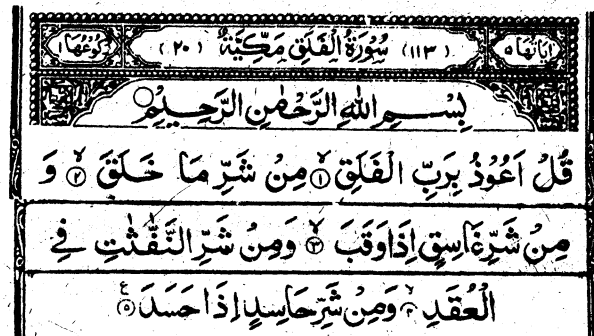 اٰیَاتُهَا ٥ (١١٣) سُوْرَةُ الْفَلَقِ مَكِّیَّةٌ (٢٠) رُكُوْعُهَا ١
بِسْمِ اللّٰهِ الرَّحْمٰنِ الرَّحِیْمِ
قُلْ اَعُوْذُ بِرَبِّ الْفَلَقِ ﴿١﴾ مِنْ شَرِّ مَا خَلَقَ ﴿٢﴾ وَ
مِنْ شَرِّ غَاسِقٍ اِذَا وَقَبَ ﴿٣﴾ وَمِنْ شَرِّ النَّفّٰثٰتِ فِی
الْعُقَدِ ﴿٤﴾ وَمِنْ شَرِّ حَاسِدٍ اِذَا حَسَدَ ﴿٥﴾